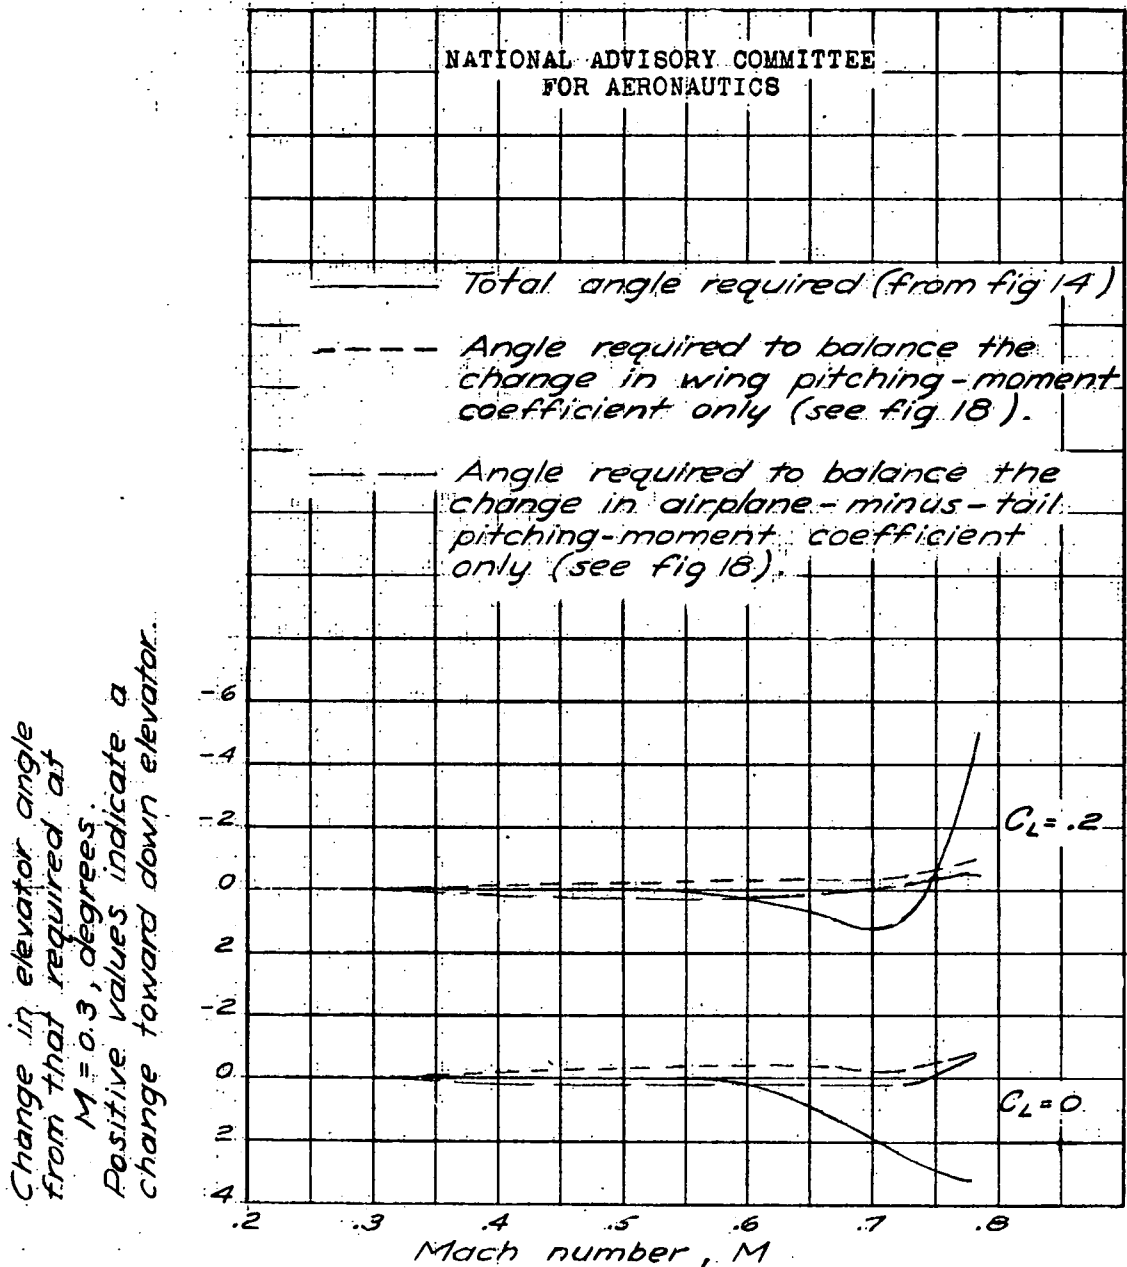 NATIONAL ADVISORY COMMITTEE
FOR AERONAUTICS
Total angle required (from fig 14)
Angle required to balance the
change in wing pitching-moment
coefficient only (see fig 18).
Angle required to balance the
change in airplane-minus-tail
pitching-moment coefficient
only (see fig 18).
Change in elevator angle
from that required at
M = 0.3, degrees.
Positive values indicate a
change toward down elevator.
-6
-4
-2
0
2
-2
0
2
4
C_L = .2
C_L = 0
.2 .3 .4 .5 .6 .7 .8
Mach number, M